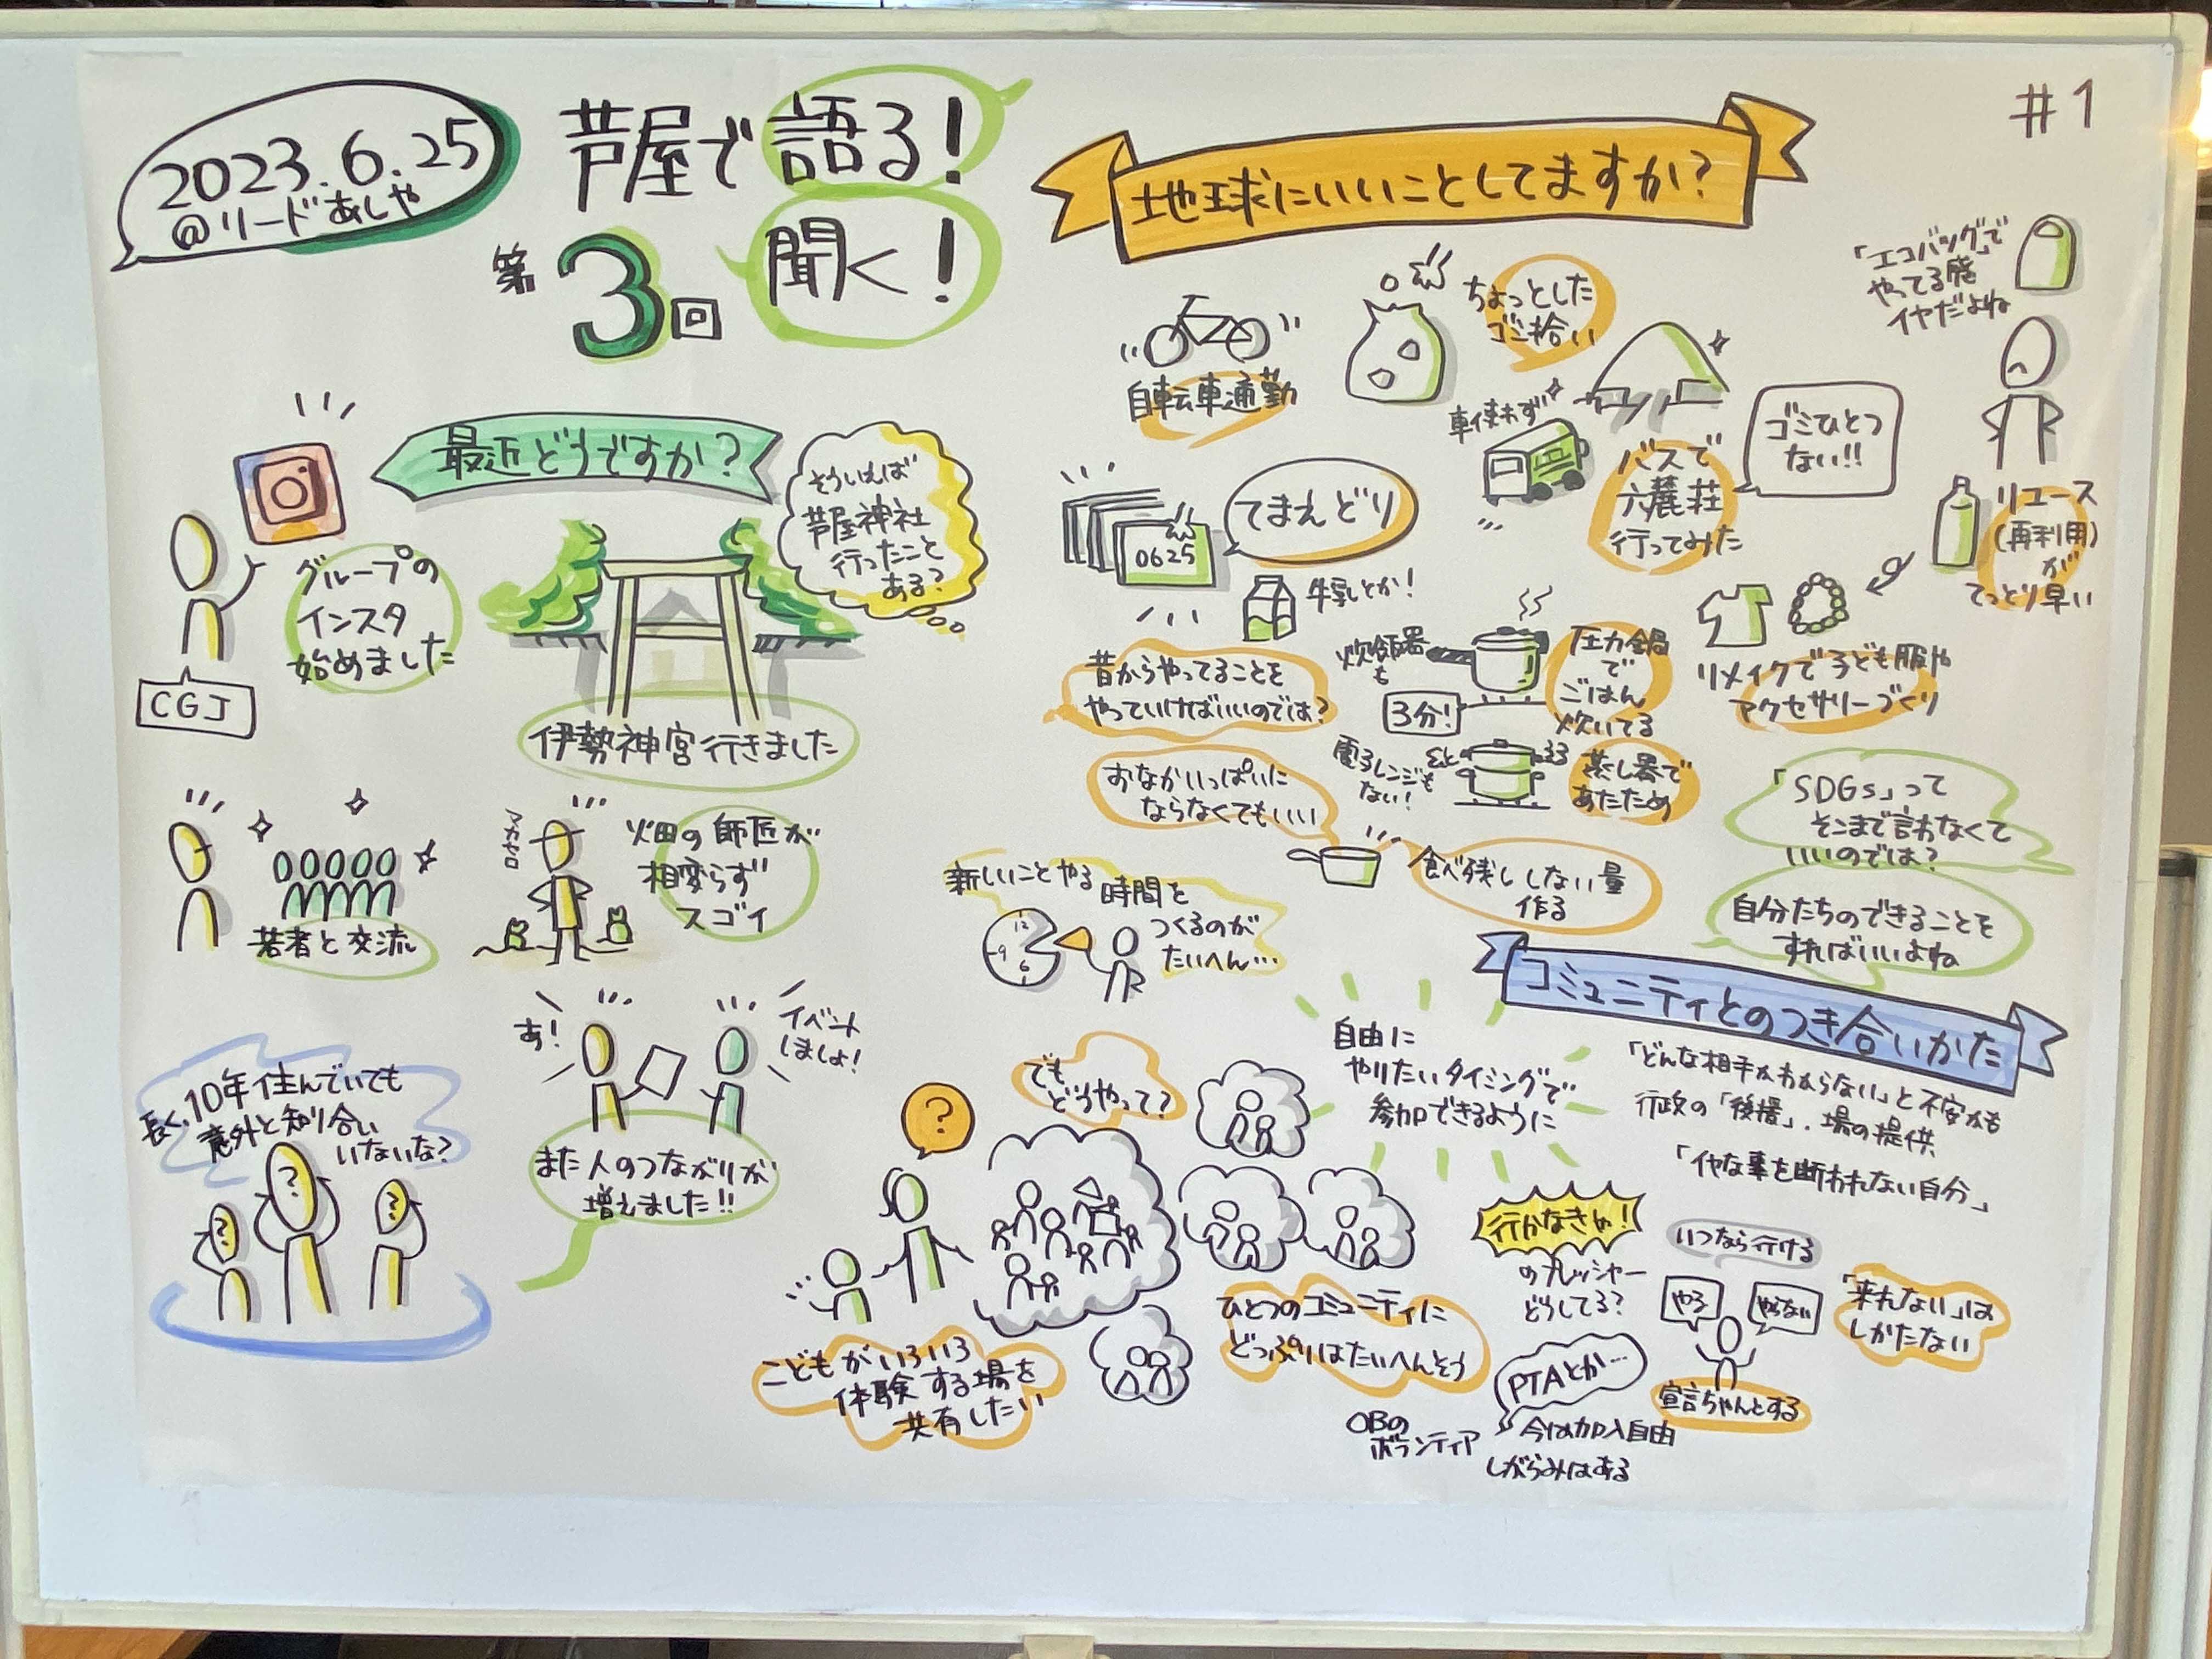 2023.6.25
@リードあしや
芦屋で語る!
第3回
聞く!
#1
最近どうですか?
グループの
インスタ
始めました
CGJ
そういえば
芦屋神社
行ったこと
ある?
伊勢神宮行きました
若者と交流
畑の師匠が
相変らず
スゴイ
あ!
イベント
しましょ!
また人のつながりが
増えました!!
長く、10年住んでいても
意外と知り合い
いないな?
?
?
?
地球にいいことしてますか?
自転車通勤
ちょっとした
ゴミ拾い
車使わず
バスで
六麓荘
行ってみた
ゴミひとつ
ない!!
「エコバッグ」で
やってる感
イヤだよね
リユース
(再利用)
が
てっとり早い
リメイクで子ども服や
アクセサリーづくり
てまえどり
0625
牛乳とか!
昔からやってることを
やっていけばいいのでは?
炊飯器
も
3分!
圧力鍋
で
ごはん
炊いてる
電子レンジも
ない!
蒸し器で
あたため
おなかいっぱいに
ならなくてもいい
食べ残ししない量
作る
「SDGs」って
そこまで言わなくて
いいのでは?
自分たちのできることを
すればいいよね
新しいことやる時間を
つくるのが
たいへん…
12
9
6
コミュニティとのつき合いかた
「どんな相手かわからない」と不安かも
行政の「後援」、場の提供
「イヤな事を断われない自分」
自由に
やりたいタイミングで
参加できるように
でも
どうやって?
?
こどもがいろいろ
体験する場を
共有したい
ひとつのコミュニティに
どっぷりはたいへんそう
行かなきゃ!
のプレッシャー
どうしてる?
いつなら行ける
やる
やらない
宣言ちゃんとする
「来れない」は
しかたない
PTAとか…
OBの
ボランティア
今は加入自由
しがらみはある